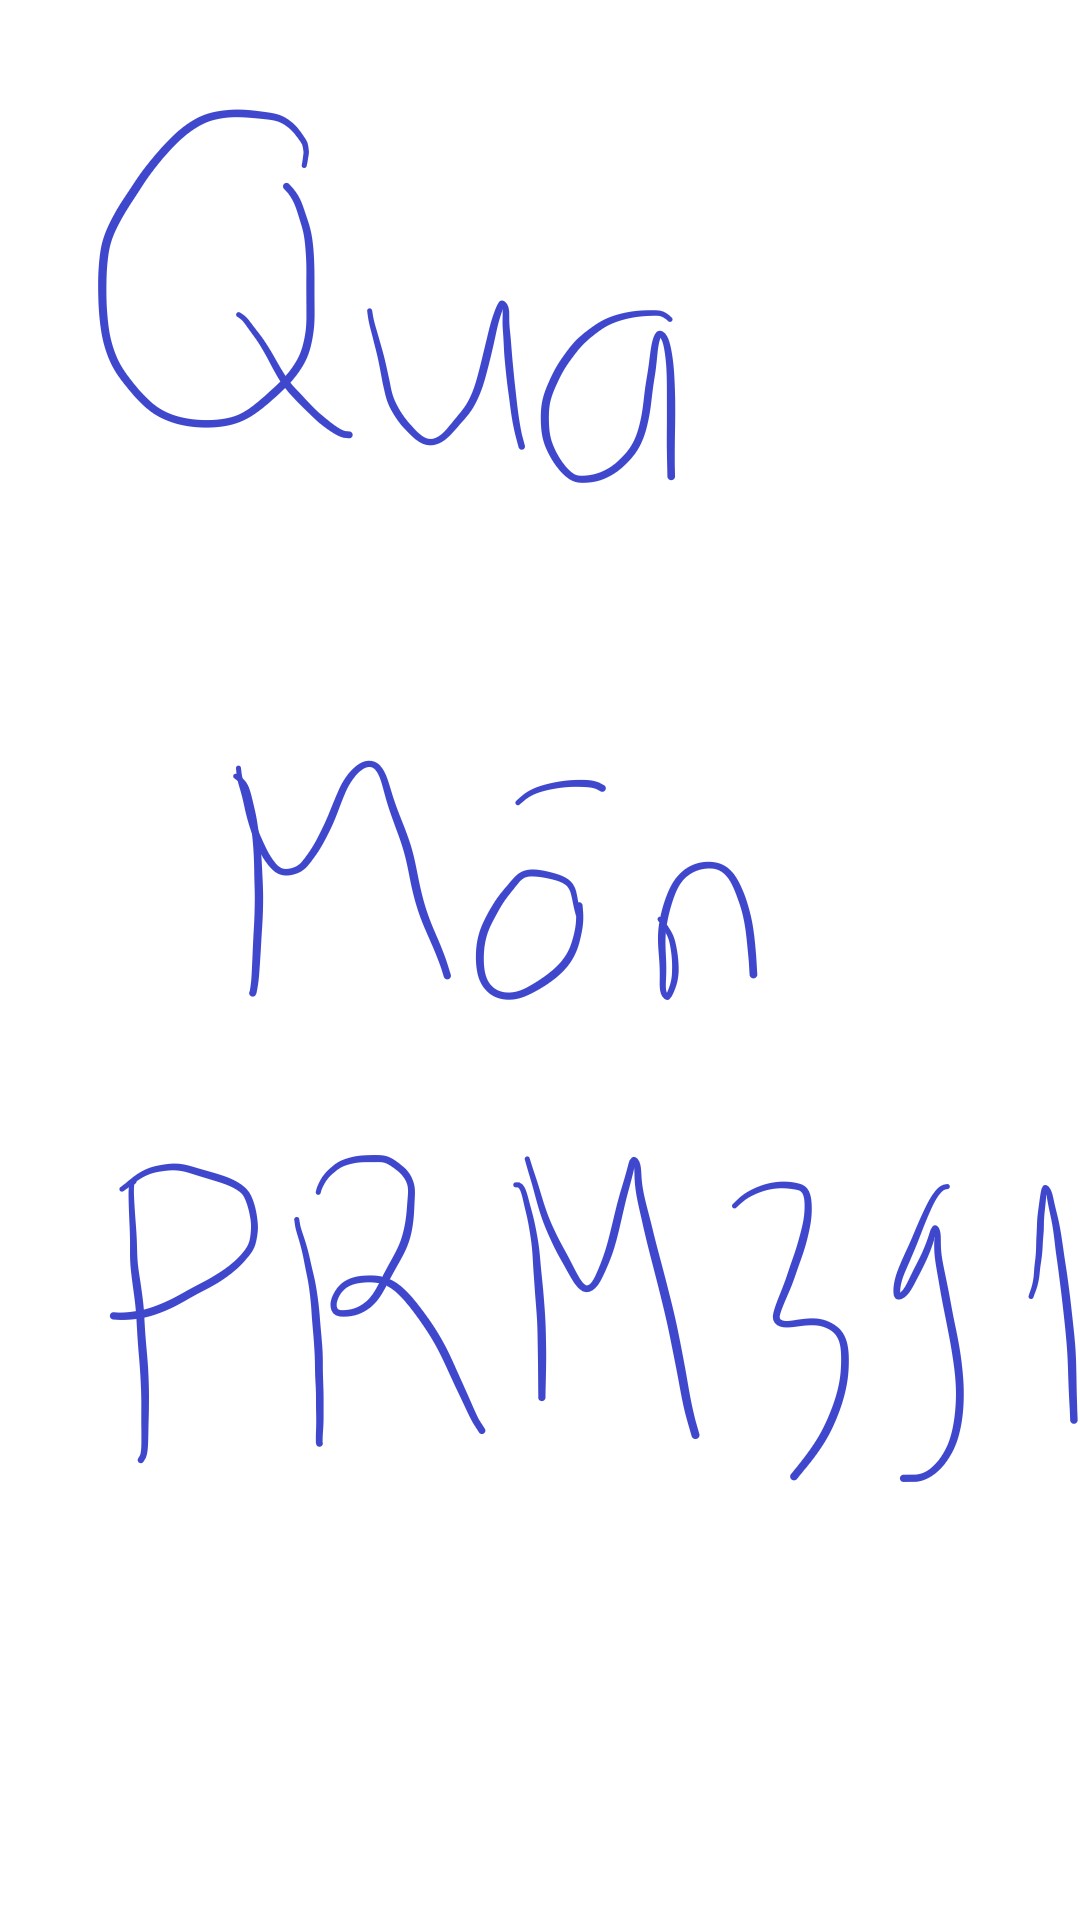 Qua
Mōn
PRM391